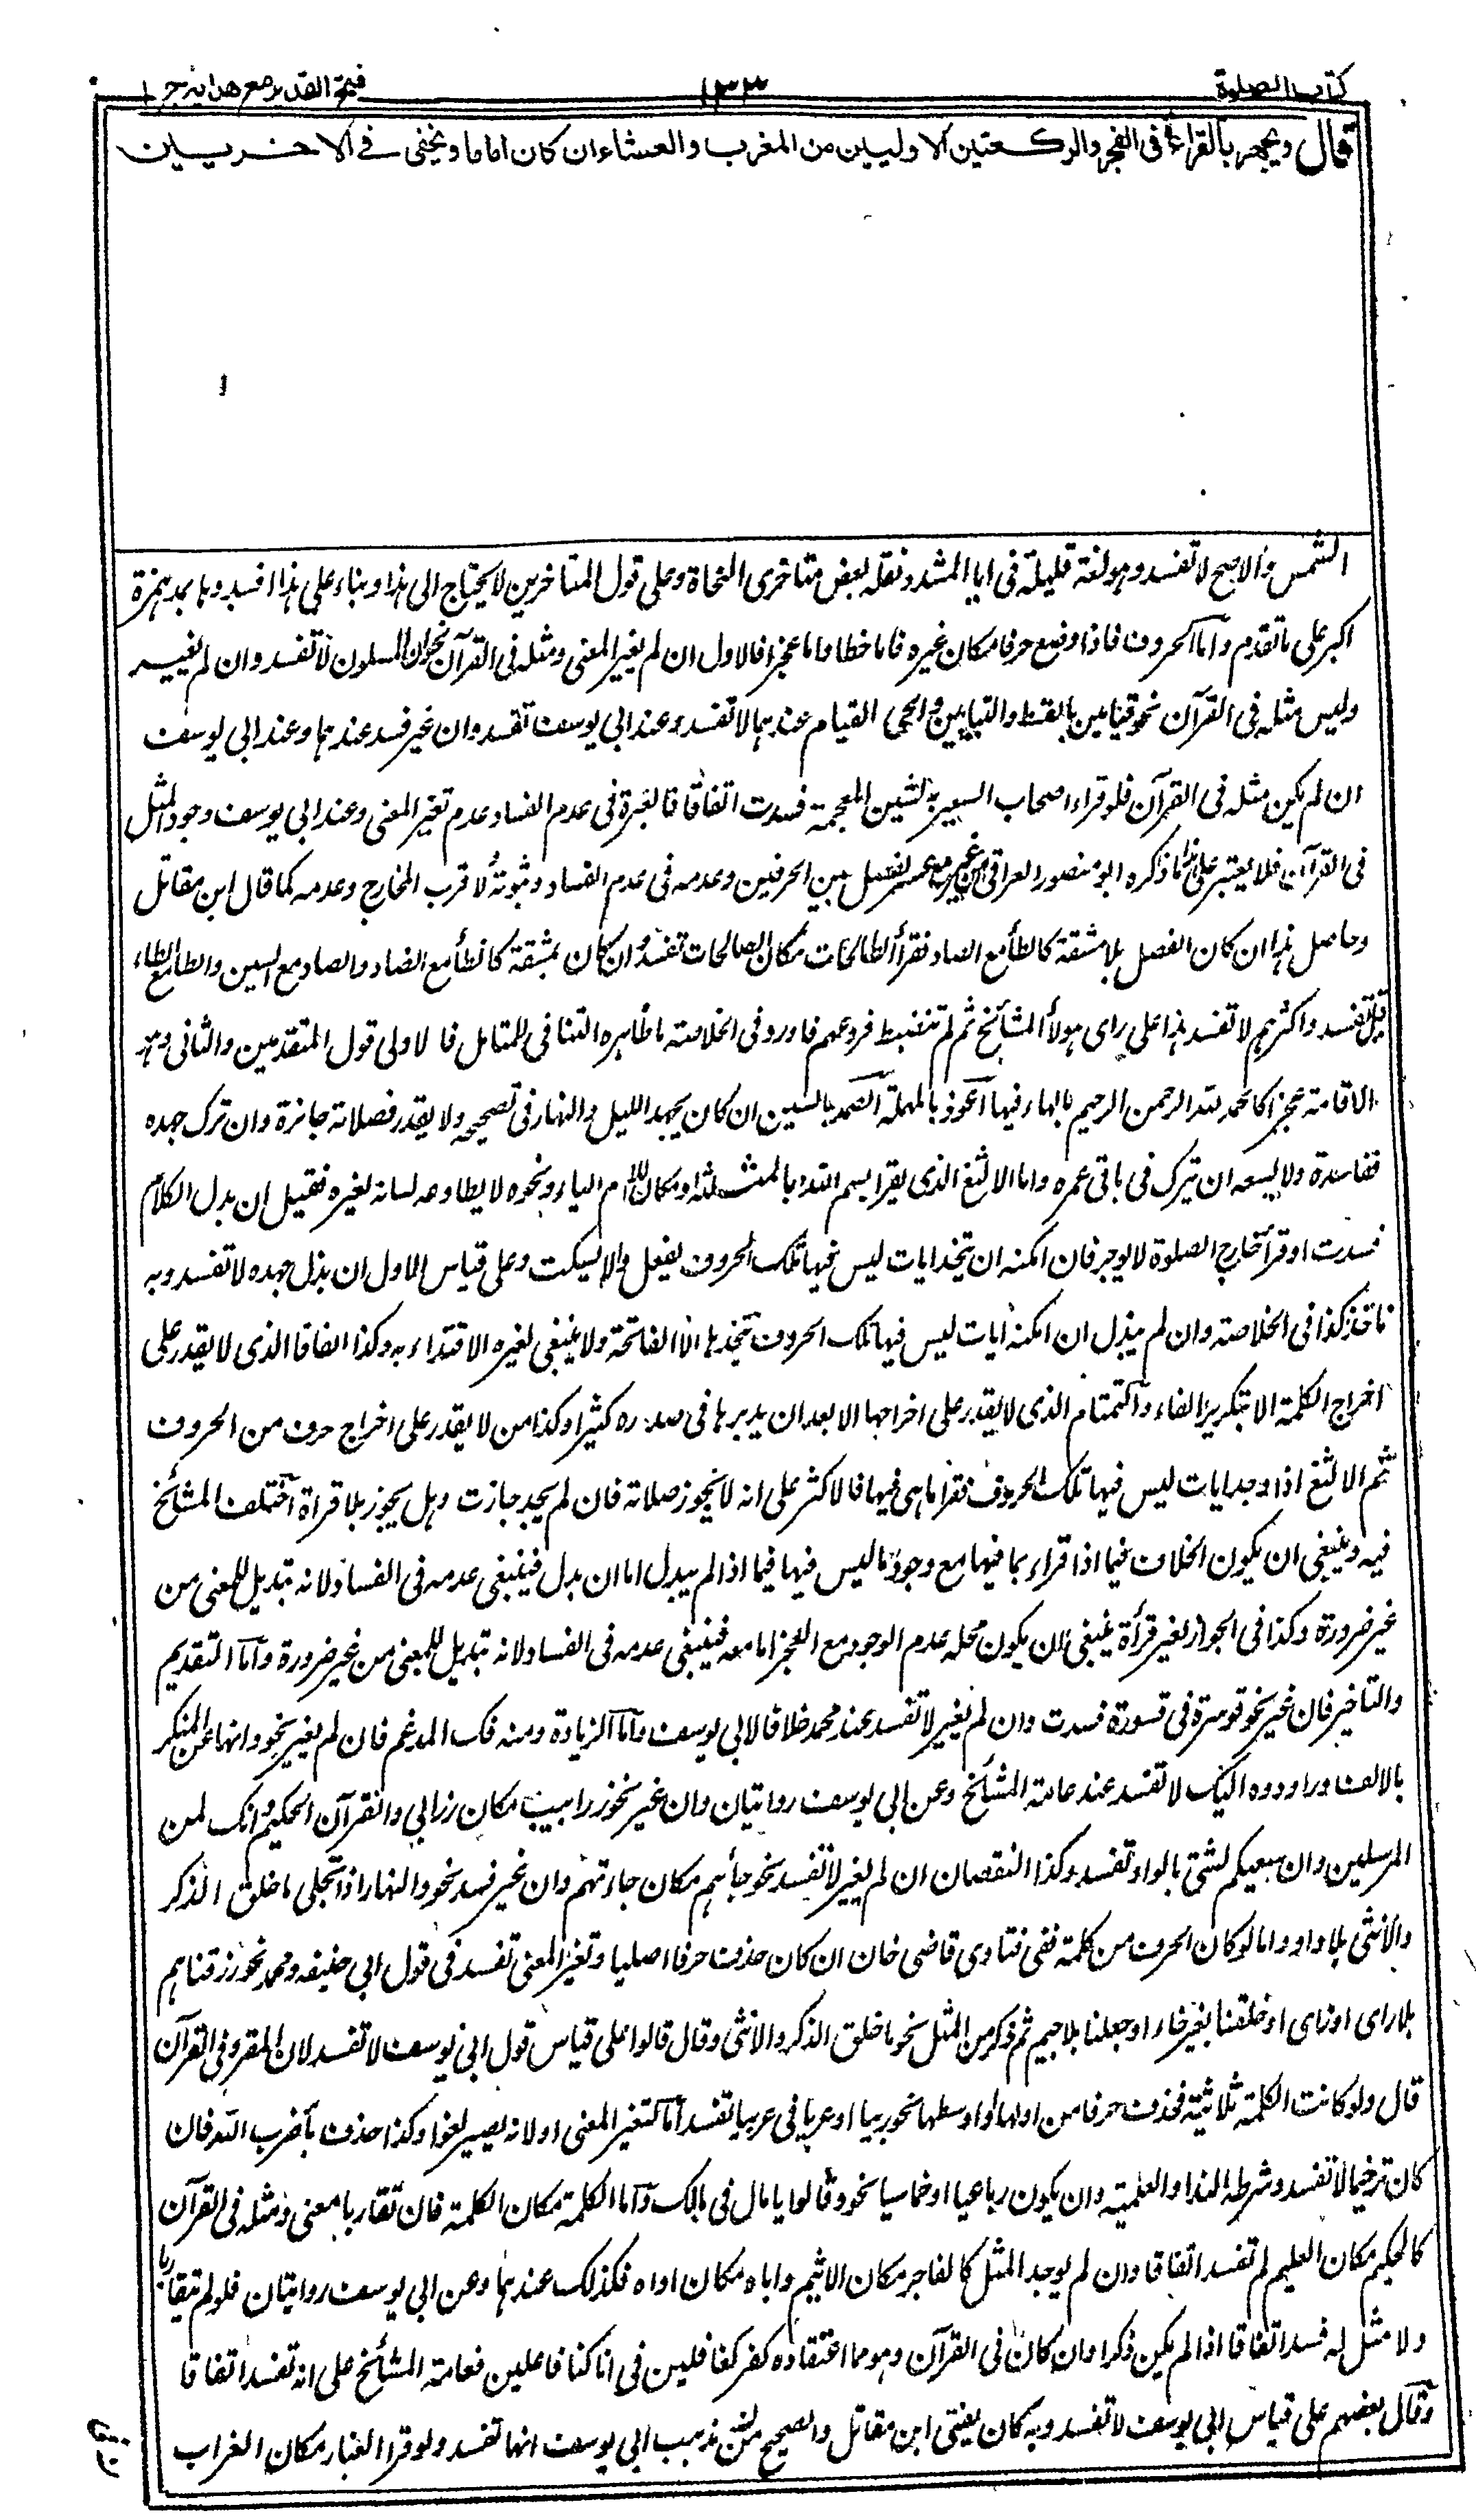 كتاب الصلوة
١٣٣
فتح القدير مع هداية جـ ١
قال ويجهر بالقراءة فى الفجر والركعتين الاوليين من المغرب والعشاء ان كان اماما ويخفى فى الاخريين
الشمس والاصح لا تفسد وهو لغة قليلة فى ايا المشدد ونقله بعض متاخرى النحاة وعلى قول المتاخرين لا يحتاج الى هذا وبناء على هذا افسدوها بمد همزة
اكبر على ما تقدم واما الحروف فاذا وضع حرفا مكان غيره فاما خطا واما عجزا فالاول ان لم يغير المعنى ومثله فى القرآن نحو ان المسلمون لا تفسد وان لم يغير
وليس مثله فى القرآن نحو قيامين بالقسط والتيابين والحى القيام عندهما لا تفسد وعند ابى يوسف تفسد وان غير فسد عندهما وعند ابى يوسف
ان لم يكن مثله فى القرآن فلو قراء اصحاب السعير بالشين المعجمة فسدت اتفاقا فالعبرة فى عدم الفساد عدم تغير المعنى وعند ابى يوسف وجود المثل
فى القرآن فلا يعتبر على هذا ما ذكره ابو منصور العراقى من عسر الفصل بين الحرفين وعدمه فى عدم الفساد وثبوته ولا قرب المخارج وعدمه كما قال ابن مقاتل
وحاصل هذا ان كان الفصل بلا مشقة كالطأ مع الصاد فقرأ الطالحات مكان الصالحات تفسد وان كان بمشقة كالظأ مع الضاد والصاد مع السين والطا مع التاء
قيل تفسد واكثرهم لا تفسد هذا على راى هولأ المشائخ ثم لم تنضبط فروعهم فاورد فى الخلاصة ما ظاهره التنافى للمتامل فالاولى قول المتقدمين والثانى وهو
الاقامة عجزا كالحمد لله الرحمن الرحيم بالهاء فيها اعوذ بالمهملة الصمد بالسين ان كان يجهد الليل والنهار فى تصحيحه ولا يقدر فصلاته جائزة وان ترك جهده
ففاسدة ولا يسعه ان يترك فى باقى عمره واما الالثغ الذى يقرا بسم الله بالمثلثة او مكان اللام الياء ونحوه لا يطاوعه لسانه لغيره فقيل ان بدل الكلام
فسدت او قرأ خارج الصلوة لا يوجر فان امكنه ان يتخذ ايات ليس فيها تلك الحروف يفعل والا يسكت وعلى قياس الاول ان بذل جهده لا تفسد وبه
ناخذ كذا فى الخلاصة وان لم يبذل ان امكنه ايات ليس فيها تلك الحروف يتخذها الا الفاتحة ولا ينبغى لغيره الاقتداء به وكذا الفافا الذى لا يقدر على
اخراج الكلمة الا بتكرير الفاء والتمتام الذى لا يقدر على اخراجها الا بعد ان يديرها فى صدره كثيرا وكذا من لا يقدر على اخراج حرف من الحروف
ثم الالثغ اذا وجد ايات ليس فيها تلك الحروف فقرا ما هى فيها فالاكثر على انه لا يجوز صلاته فان لم يجد جازت وهل يجوز بلا قراة اختلف المشائخ
فيه وينبغى ان يكون الخلاف فيما اذا قراء بما فيها مع وجود ما ليس فيها فيما اذا لم يبدل اما ان بدل فينبغى عدمه فى الفساد لانه تبديل للمعنى من
غير ضرورة وكذا فى الجواز بغير قرأة ينبغى ان يكون محله عدم الوجود مع العجز اما معه فينبغى عدمه فى الفساد لانه تبديل للمعنى من غير ضرورة واما التقديم
والتاخير فان غير نحو قوسرة فى قسورة فسدت وان لم يغير لا تفسد عند محمد خلافا لابى يوسف واما الزيادة ومنه فك المدغم فان لم يغير نحو وانها عن المنكر
بالالف وراددوه اليك لا تفسد عند عامة المشائخ وعن ابى يوسف روايتان وان غير نحو زرابيب مكان زرابى والقرآن الحكيم وانك لمن
المرسلين وان سعيكم لشتى بالواو تفسد وكذا النقصان ان لم يغير لا تفسد نحو جأهم مكان جاءتهم وان غير فسد نحو والنهار اذا تجلى ما خلق الذكر
والانثى بلا واو واما لو كان الحرف من كلمة ففى فتاوى قاضى خان ان كان حذف حرفا اصليا وتغير المعنى تفسد فى قول ابى حنيفه ومحمد نحو رزقناهم
بلا راى او زاى او خلقنا بغير خاء او جعلنا بلا جيم ثم ذكر من المثل نحو ما خلق الذكر والانثى وقال قالوا على قياس قول ابى يوسف لا تفسد لان المقرو فى القرآن
قال ولو كانت الكلمة ثلاثية فحذف حرفا من اولها او اوسطها نحو ربيا او عربا فى عربيا تفسد اما لتغير المعنى او لانه يصير لغوا وكذا حذف بأ ضرب الله فان
كان ترخيما لا تفسد وشرطه النداء والعلمية وان يكون رباعيا او خماسيا نحو وقالوا يا مال فى مالك واما الكلمة مكان الكلمة فان تقاربا معنى ومثله فى القرآن
كالحكيم مكان العليم لم تفسد اتفاقا وان لم يوجد المثل كالفاجر مكان الاثيم واياه مكان اواه فكذلك عندهما وعن ابى يوسف روايتان فلو لم يتقاربا
ولا مثل له فسد اتفاقا اذا لم يكن ذكرا وان كان فى القرآن وهو مما اعتقاده كفر كغافلين فى انا كنا فاعلين فعامة المشائخ على انه تفسد اتفاقا
وقال بعضهم على قياس ابى يوسف لا تفسد وبه كان يفتى ابن مقاتل والصحيح من مذهب ابى يوسف انها تفسد ولو قرا الغبار مكان الغراب